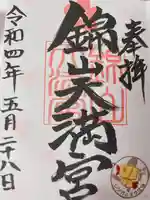 奉拝
錦山天満宮
令和四年五月二十八日